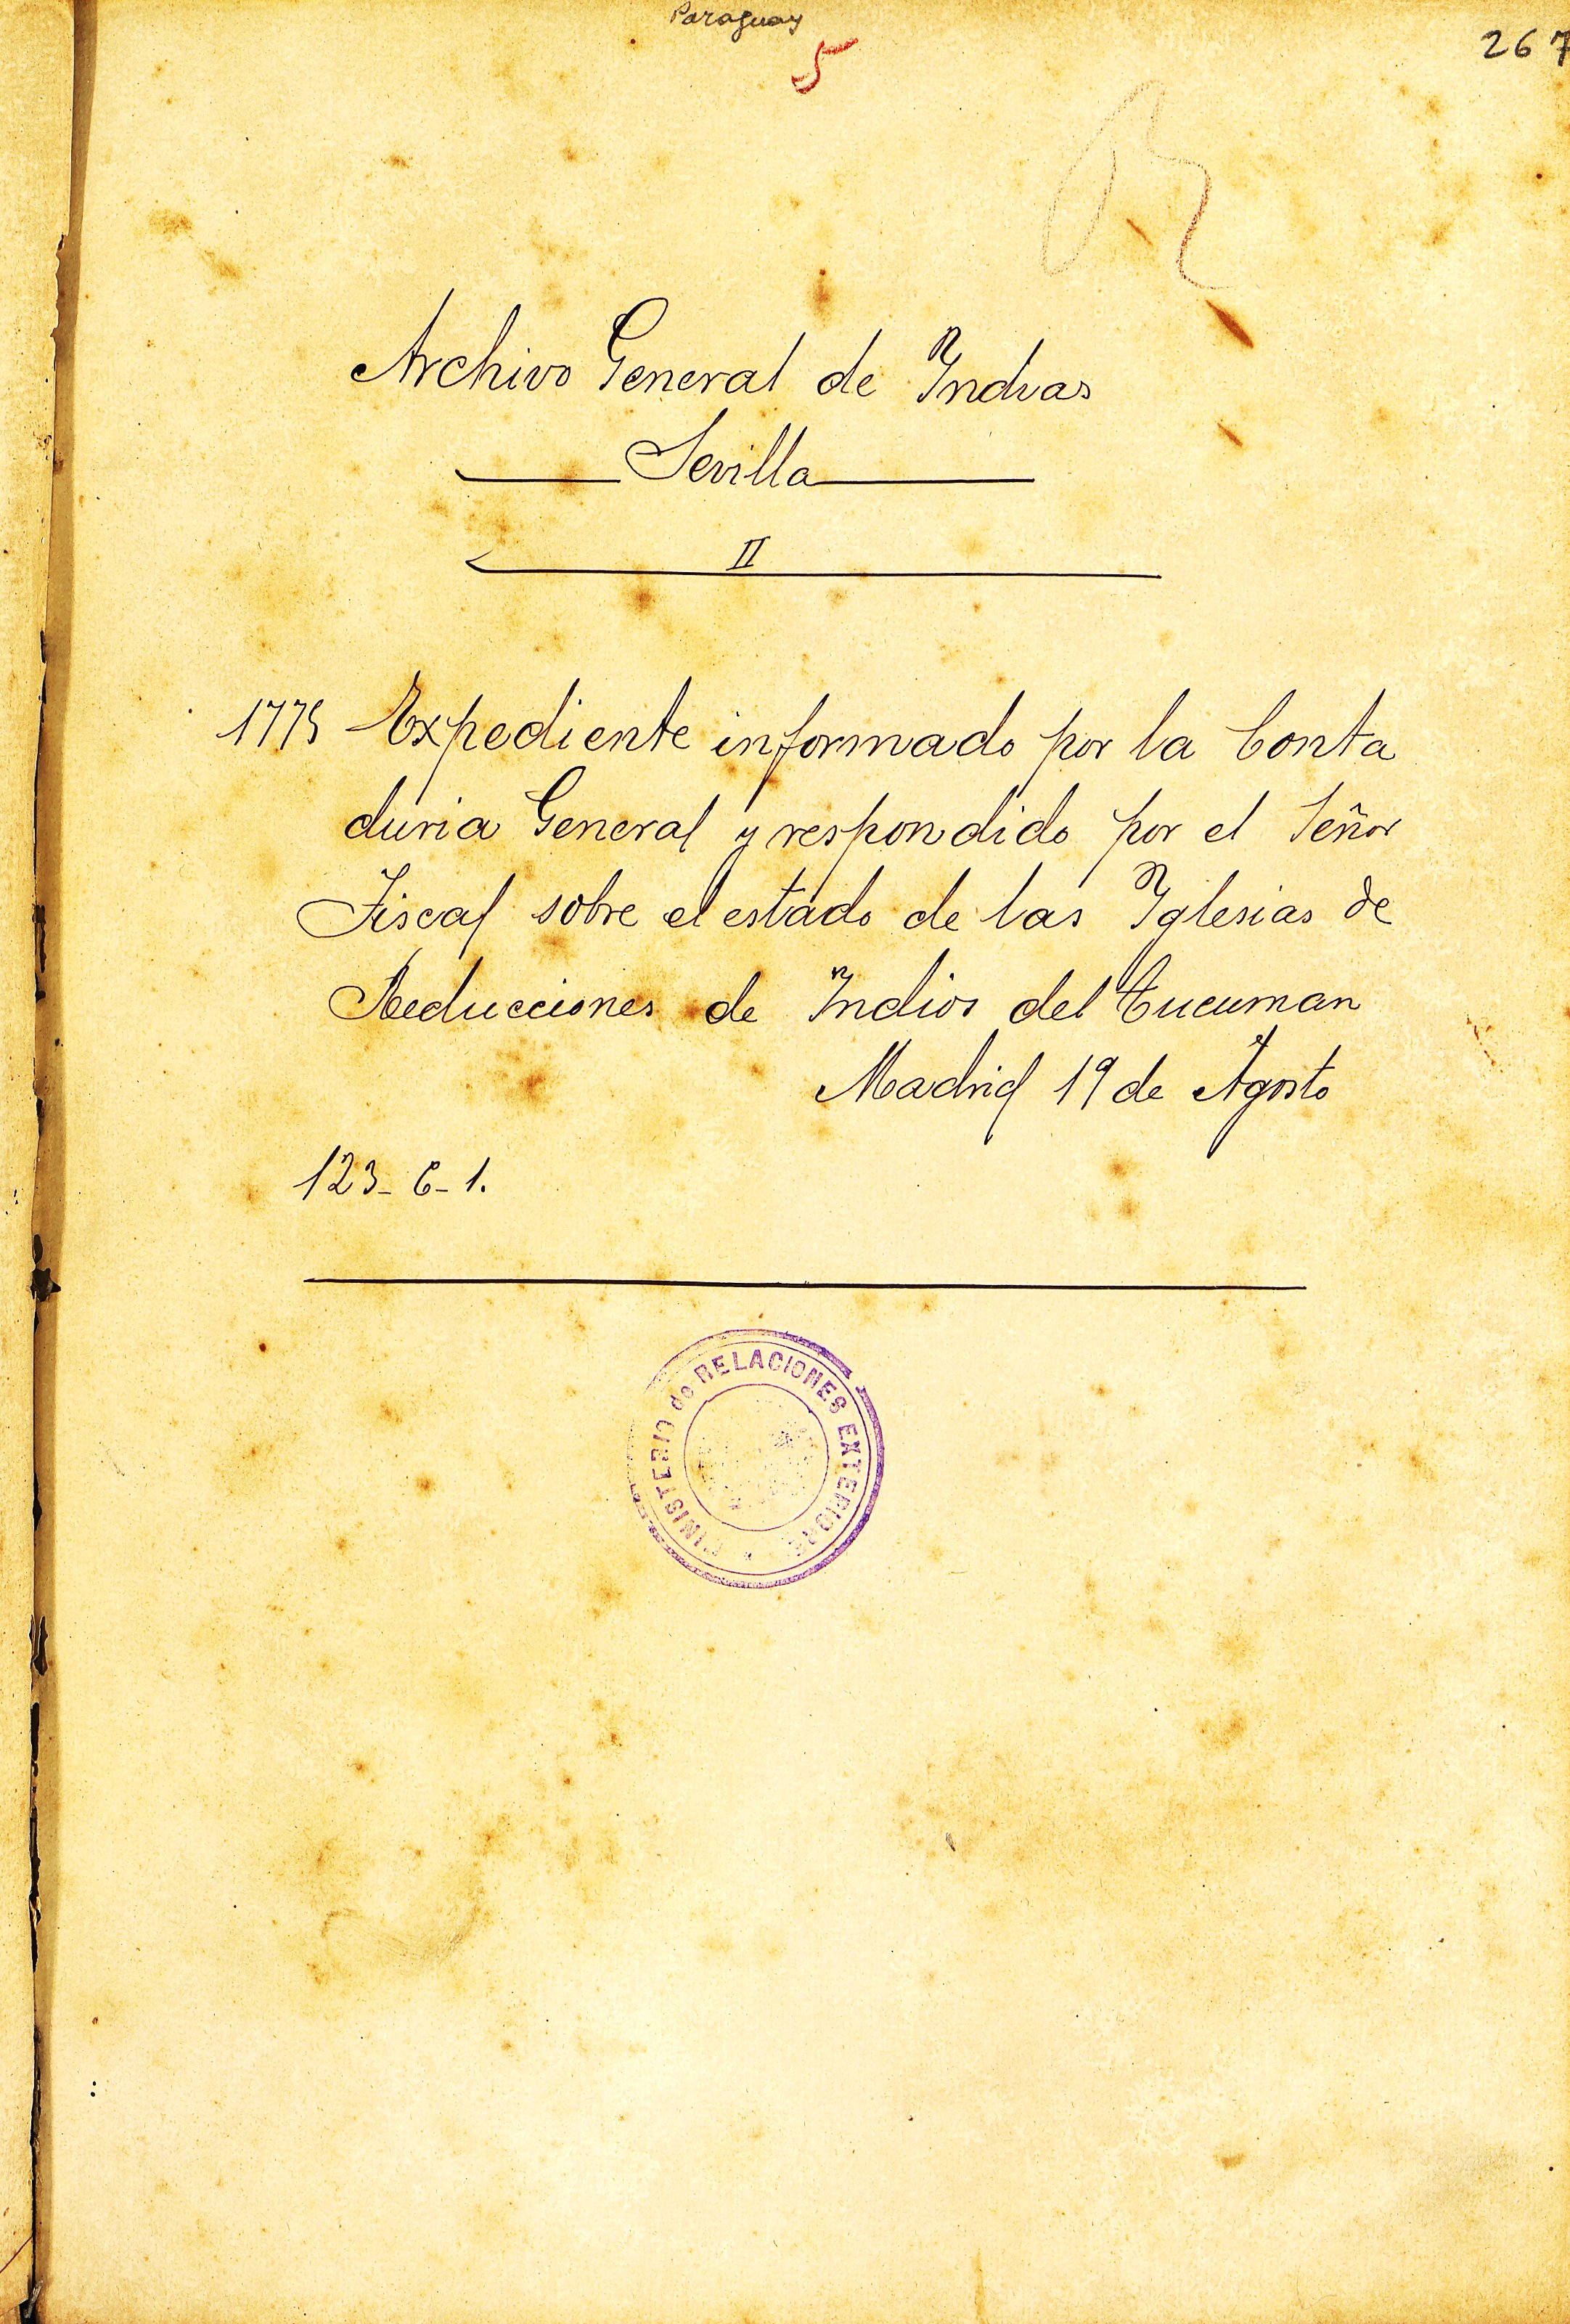 Paraguay
5
267
R
Archivo General de Indias
Sevilla
II
1775 Expediente informado por la Conta
duria General y respondido por el Señor
Fiscal sobre el estado de las Yglesias de
Reducciones de Indios del Tucuman
Madrid 19 de Agosto
123-6-1.
MINISTERIO de RELACIONES EXTERIORES